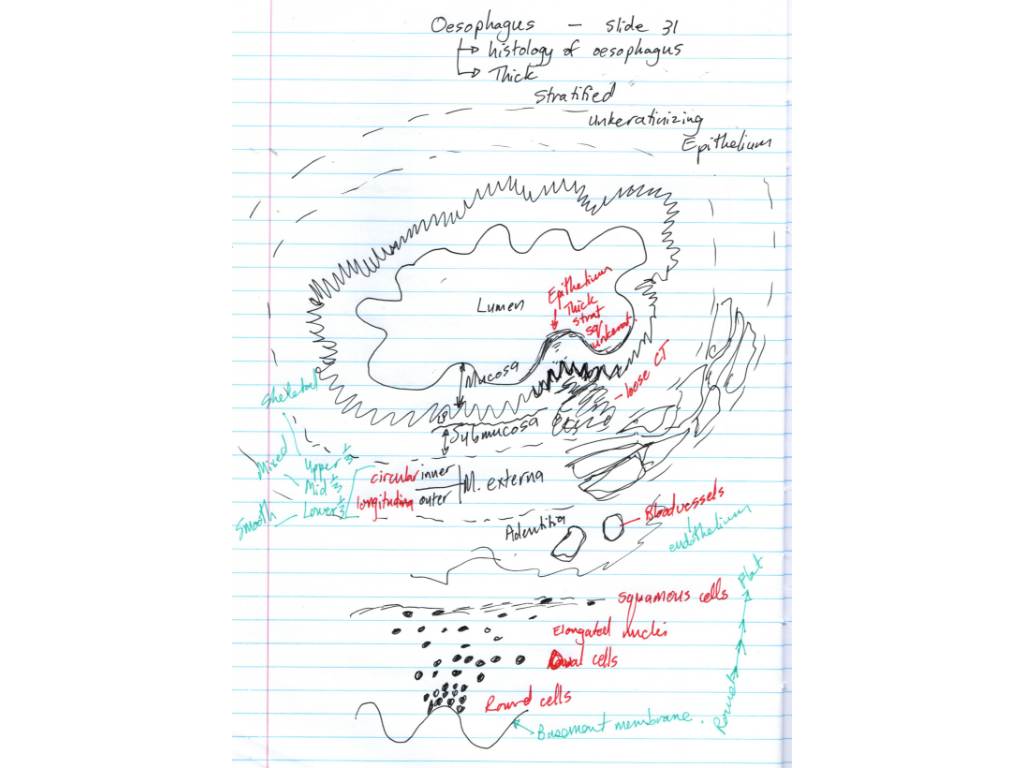 Oesophagus — slide 31
histology of oesophagus
Thick
Stratified
unkeratinizing
Epithelium
Lumen
Epithelium
Thick
strat
sq/
unkerat.
Mucosa
loose CT
Submucosa
Skeletal
Mixed
Smooth
Upper 1/3
Mid 1/3
Lower 1/3
circular inner
longitudinal outer
M. externa
Adventitia
Bloodvessels
endothelium
Squamous cells
Elongated nuclei
Oval cells
Round cells
Basement membrane.
Round
Flat